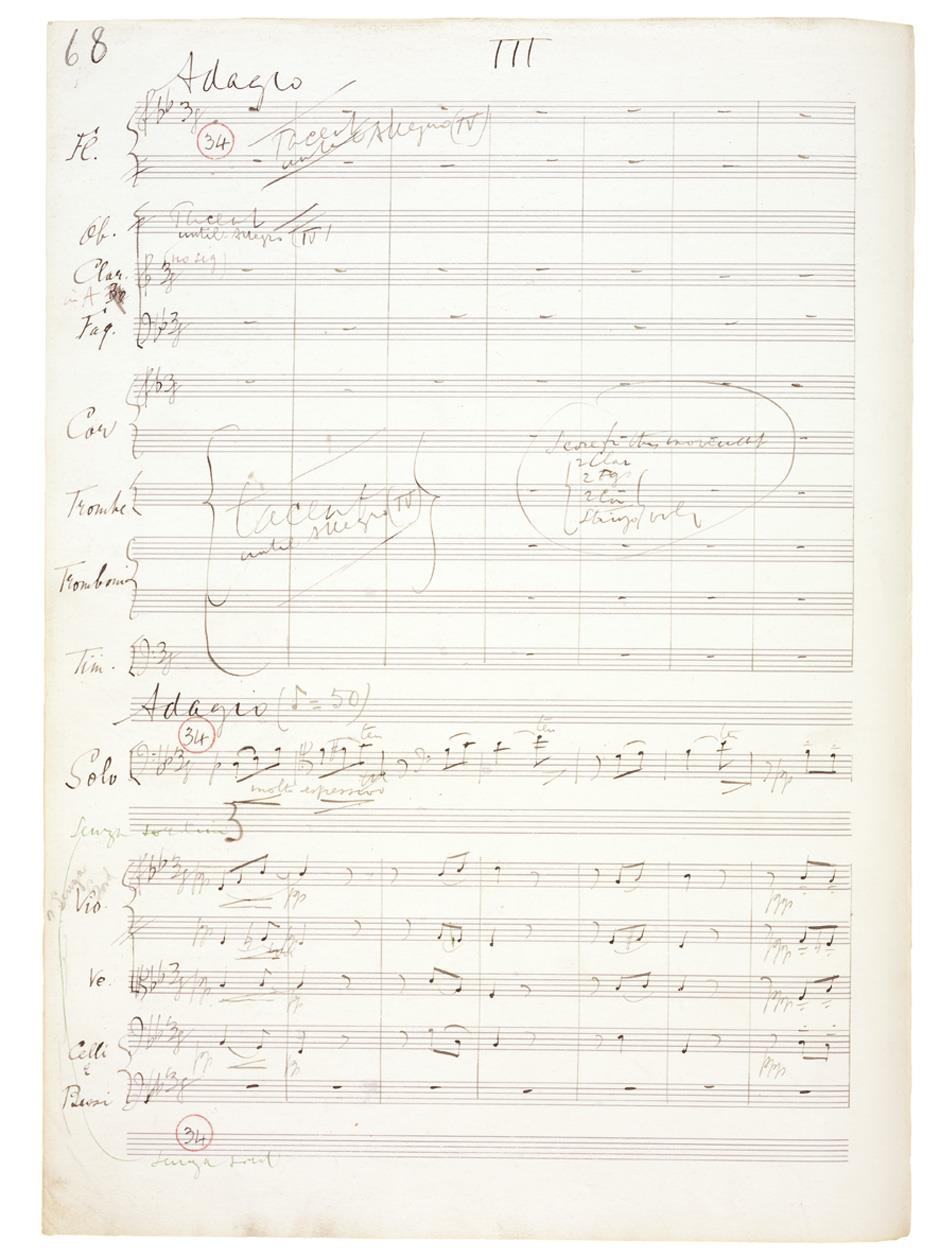 68
III
Adagio
Fl.
34
Tacent
until Allegro (IV)
Ob.
Tacent
until Allegro (IV)
Clar.
in A
(no sig)
Fag.
Cor
Score for this movement
2 Clar
2 Fgs
2 Cor
Strings only
Trombe
tacent
until Allegro (IV)
Tromboni
Tim.
Adagio (♪= 50)
34
Solo
p
ten
ten
ten
pp
molto espressivo
Senza sordini
Senza
sord
Vio.
pp
pp
ppp
pp
pp
ppp
Ve.
pp
pp
ppp
Celli
e
pp
p
ppp
Bassi
34
senza sord